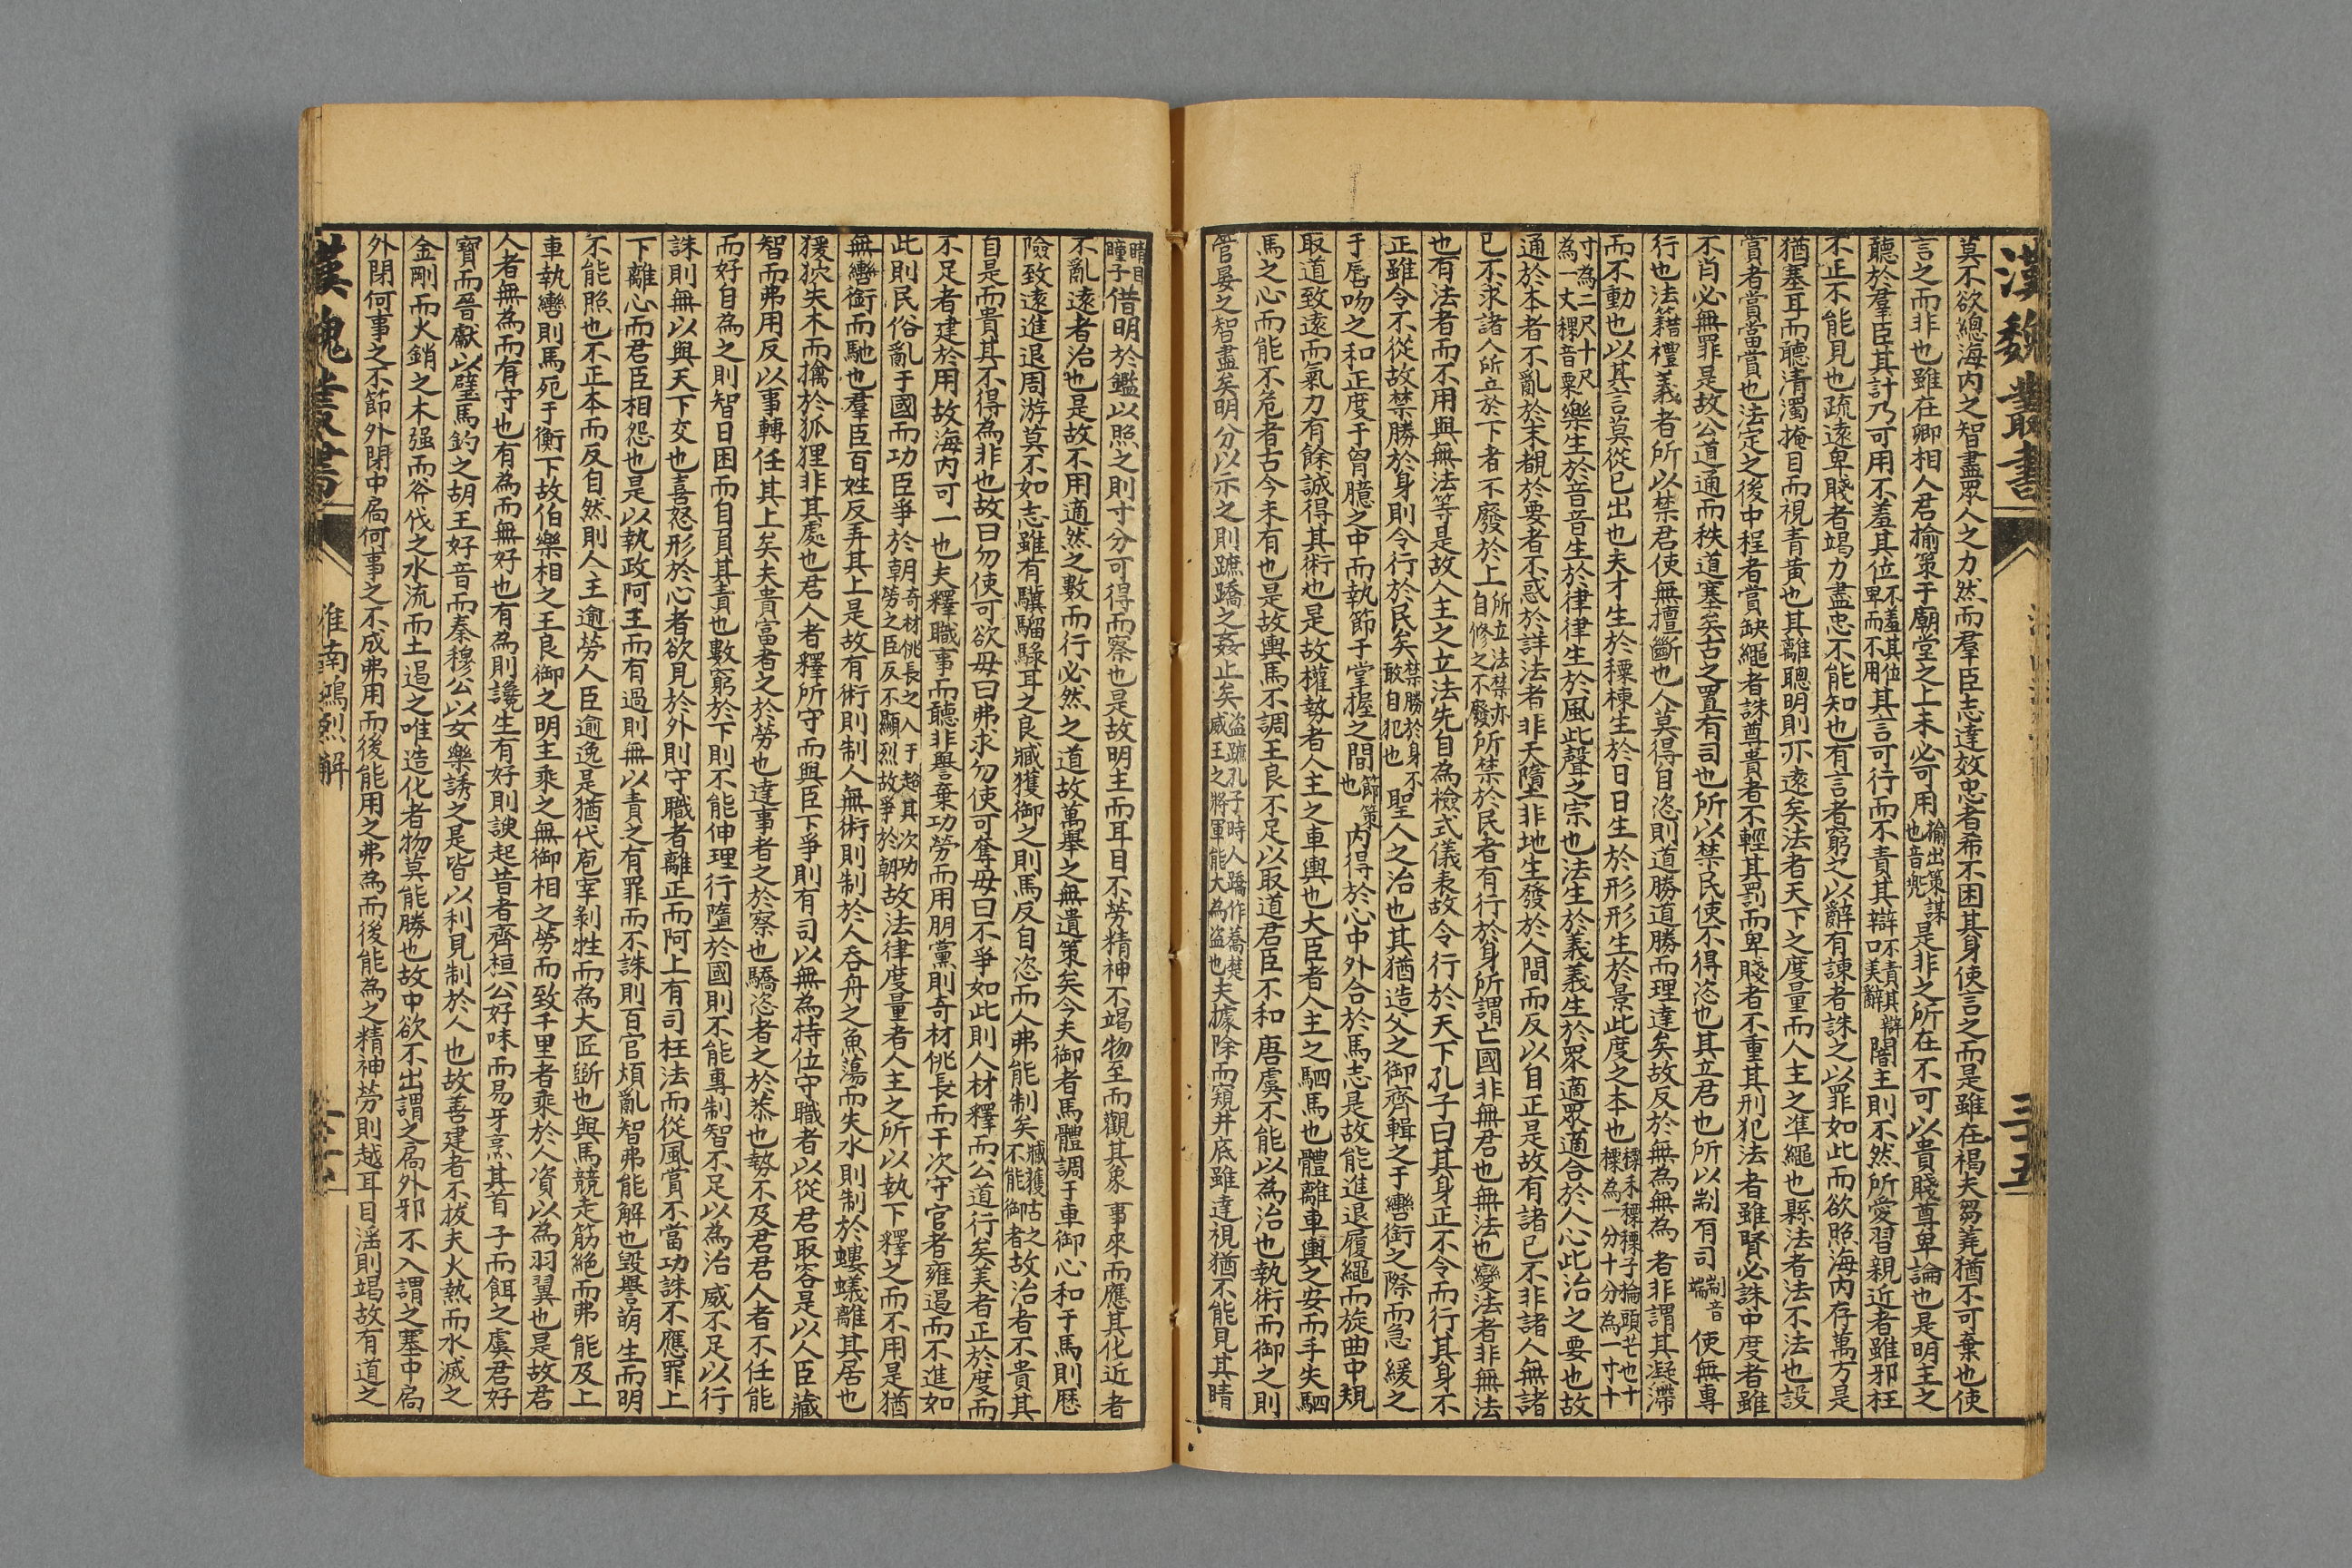 漢魏叢書
三十五
莫不欲總海內之智盡眾人之力然而羣臣志達效忠者希不困其身使言之而是雖在褐夫芻蕘猶不可棄也使
言之而非也雖在卿相人君揄策于廟堂之上未必可用揄出策謀也音兠是非之所在不可以貴賤尊卑論也是明主之
聽於羣臣其計乃可用不羞其位不羞其位卑而不用其言可行而不責其辯不責其辯口美辭闇主則不然所愛習親近者雖邪枉
不正不能見也疏遠卑賤者竭力盡忠不能知也有言者窮之以辭有諫者誅之以罪如此而欲照海內存萬方是
猶塞耳而聽清濁掩目而視青黃也其離聰明則亦遠矣法者天下之度量而人主之準繩也縣法者法不法也設
賞者賞當賞也法定之後中程者賞缺繩者誅尊貴者不輕其罰而卑賤者不重其刑犯法者雖賢必誅中度者雖
不肖必無罪是故公道通而秩道塞矣古之置有司也所以禁民使不得恣也其立君也所以剬有司剬音端使無專
行也法籍禮義者所以禁君使無擅斷也人莫得自恣則道勝道勝而理達矣故反於無為無為者非謂其凝滯
而不動也以其言莫從已出也夫才生於𥡝𥡝生於日日生於形形生於景此度之本也𥡝禾𥡝𥡝子揄頭芒也十𥡝為一分十分為一寸十
寸為二尺十尺為一丈𥡝音粟樂生於音音生於律律生於風此聲之宗也法生於義義生於眾適眾適合於人心此治之要也故
通於本者不亂於末覩於要者不惑於詳法者非天墮非地生發於人間而反以自正是故有諸已不非諸人無諸
已不求諸人所立於下者不廢於上所立法禁亦自修之不廢所禁於民者有行於身所謂亡國非無君也無法也變法者非無法
也有法者而不用與無法等是故人主之立法先自為檢式儀表故令行於天下孔子曰其身正不令而行其身不
正雖令不從故禁勝於身則令行於民矣禁勝於身不敢自犯也聖人之治也其猶造父之御齊輯之于轡銜之際而急緩之
于脣吻之和正度于胷臆之中而執節于掌握之間節策也內得於心中外合於馬志是故能進退履繩而旋曲中規
取道致遠而氣力有餘誠得其術也是故權勢者人主之車輿也大臣者人主之駟馬也體離車輿之安而手失駟
馬之心而能不危者古今未有也是故輿馬不調王良不足以取道君臣不和唐虞不能以為治也執術而御之則
管晏之智盡矣明分以示之則蹠蹻之姦止矣盗蹠孔子時人蹻作蕎楚威王之將軍能大為盗也夫據除而窺井底雖達視猶不能見其睛
睛目瞳子借明於鑑以照之則寸分可得而察也是故明主而耳目不勞精神不竭物至而觀其象事來而應其化近者
不亂遠者治也是故不用適然之數而行必然之道故萬舉之無遺策矣今夫御者馬體調于車御心和于馬則歷
險致遠進退周游莫不如志雖有騏騮騄耳之良臧獲御之則馬反自恣而人弗能制矣臧獲古之不能御者故治者不貴其
自是而貴其不得為非也故曰勿使可欲毋曰弗求勿使可奪毋曰不爭如此則人材釋而公道行矣美者正於度而
不足者建於用故海內可一也夫釋職事而聽非譽棄功勞而用朋黨則奇材佻長而干次守官者雍遏而不進如
此則民俗亂于國而功臣爭於朝奇材佻長之人于超其次功勞之臣反不顯烈故爭於朝故法律度量者人主之所以執下釋之而不用是猶
無轡銜而馳也羣臣百姓反弄其上是故有術則制人無術則制於人吞舟之魚蕩而失水則制於螻蟻離其居也
猨狖失木而擒於狐狸非其處也君人者釋所守而與臣下爭則有司以無為持位守職者以從君取容是以人臣藏
智而弗用反以事轉任其上矣夫貴富者之於勞也達事者之於察也驕恣者之於恭也勢不及君君人者不任能
而好自為之則智日困而自負其責也數窮於下則不能伸理行墮於國則不能專制智不足以為治威不足以行
誅則無以與天下交也喜怒形於心者欲見於外則守職者離正而阿上有司枉法而從風賞不當功誅不應罪上
下離心而君臣相怨也是以執政阿王而有過則無以責之有罪而不誅則百官煩亂智弗能解也毀譽萌生而明
不能照也不正本而反自然則人主逾勞人臣逾逸是猶代庖宰剝牲而為大匠斲也與馬競走筋絕而弗能及上
車執轡則馬死于衡下故伯樂相之王良御之明主乘之無御相之勞而致千里者乘於人資以為羽翼也是故君
人者無為而有守也有為而無好也有為則讒生有好則諛起昔者齊桓公好味而易牙烹其首子而餌之虞君好
寶而晉獻以璧馬釣之胡王好音而秦穆公以女樂誘之是皆以利見制於人也故善建者不拔夫火熱而水滅之
金剛而火銷之木强而斧伐之水流而土遏之唯造化者物莫能勝也故中欲不出謂之扃外邪不入謂之塞中扃
外閉何事之不節外閉中扃何事之不成弗用而後能用之弗為而後能為之精神勞則越耳目淫則竭故有道之
漢魏叢書
淮南鴻烈解